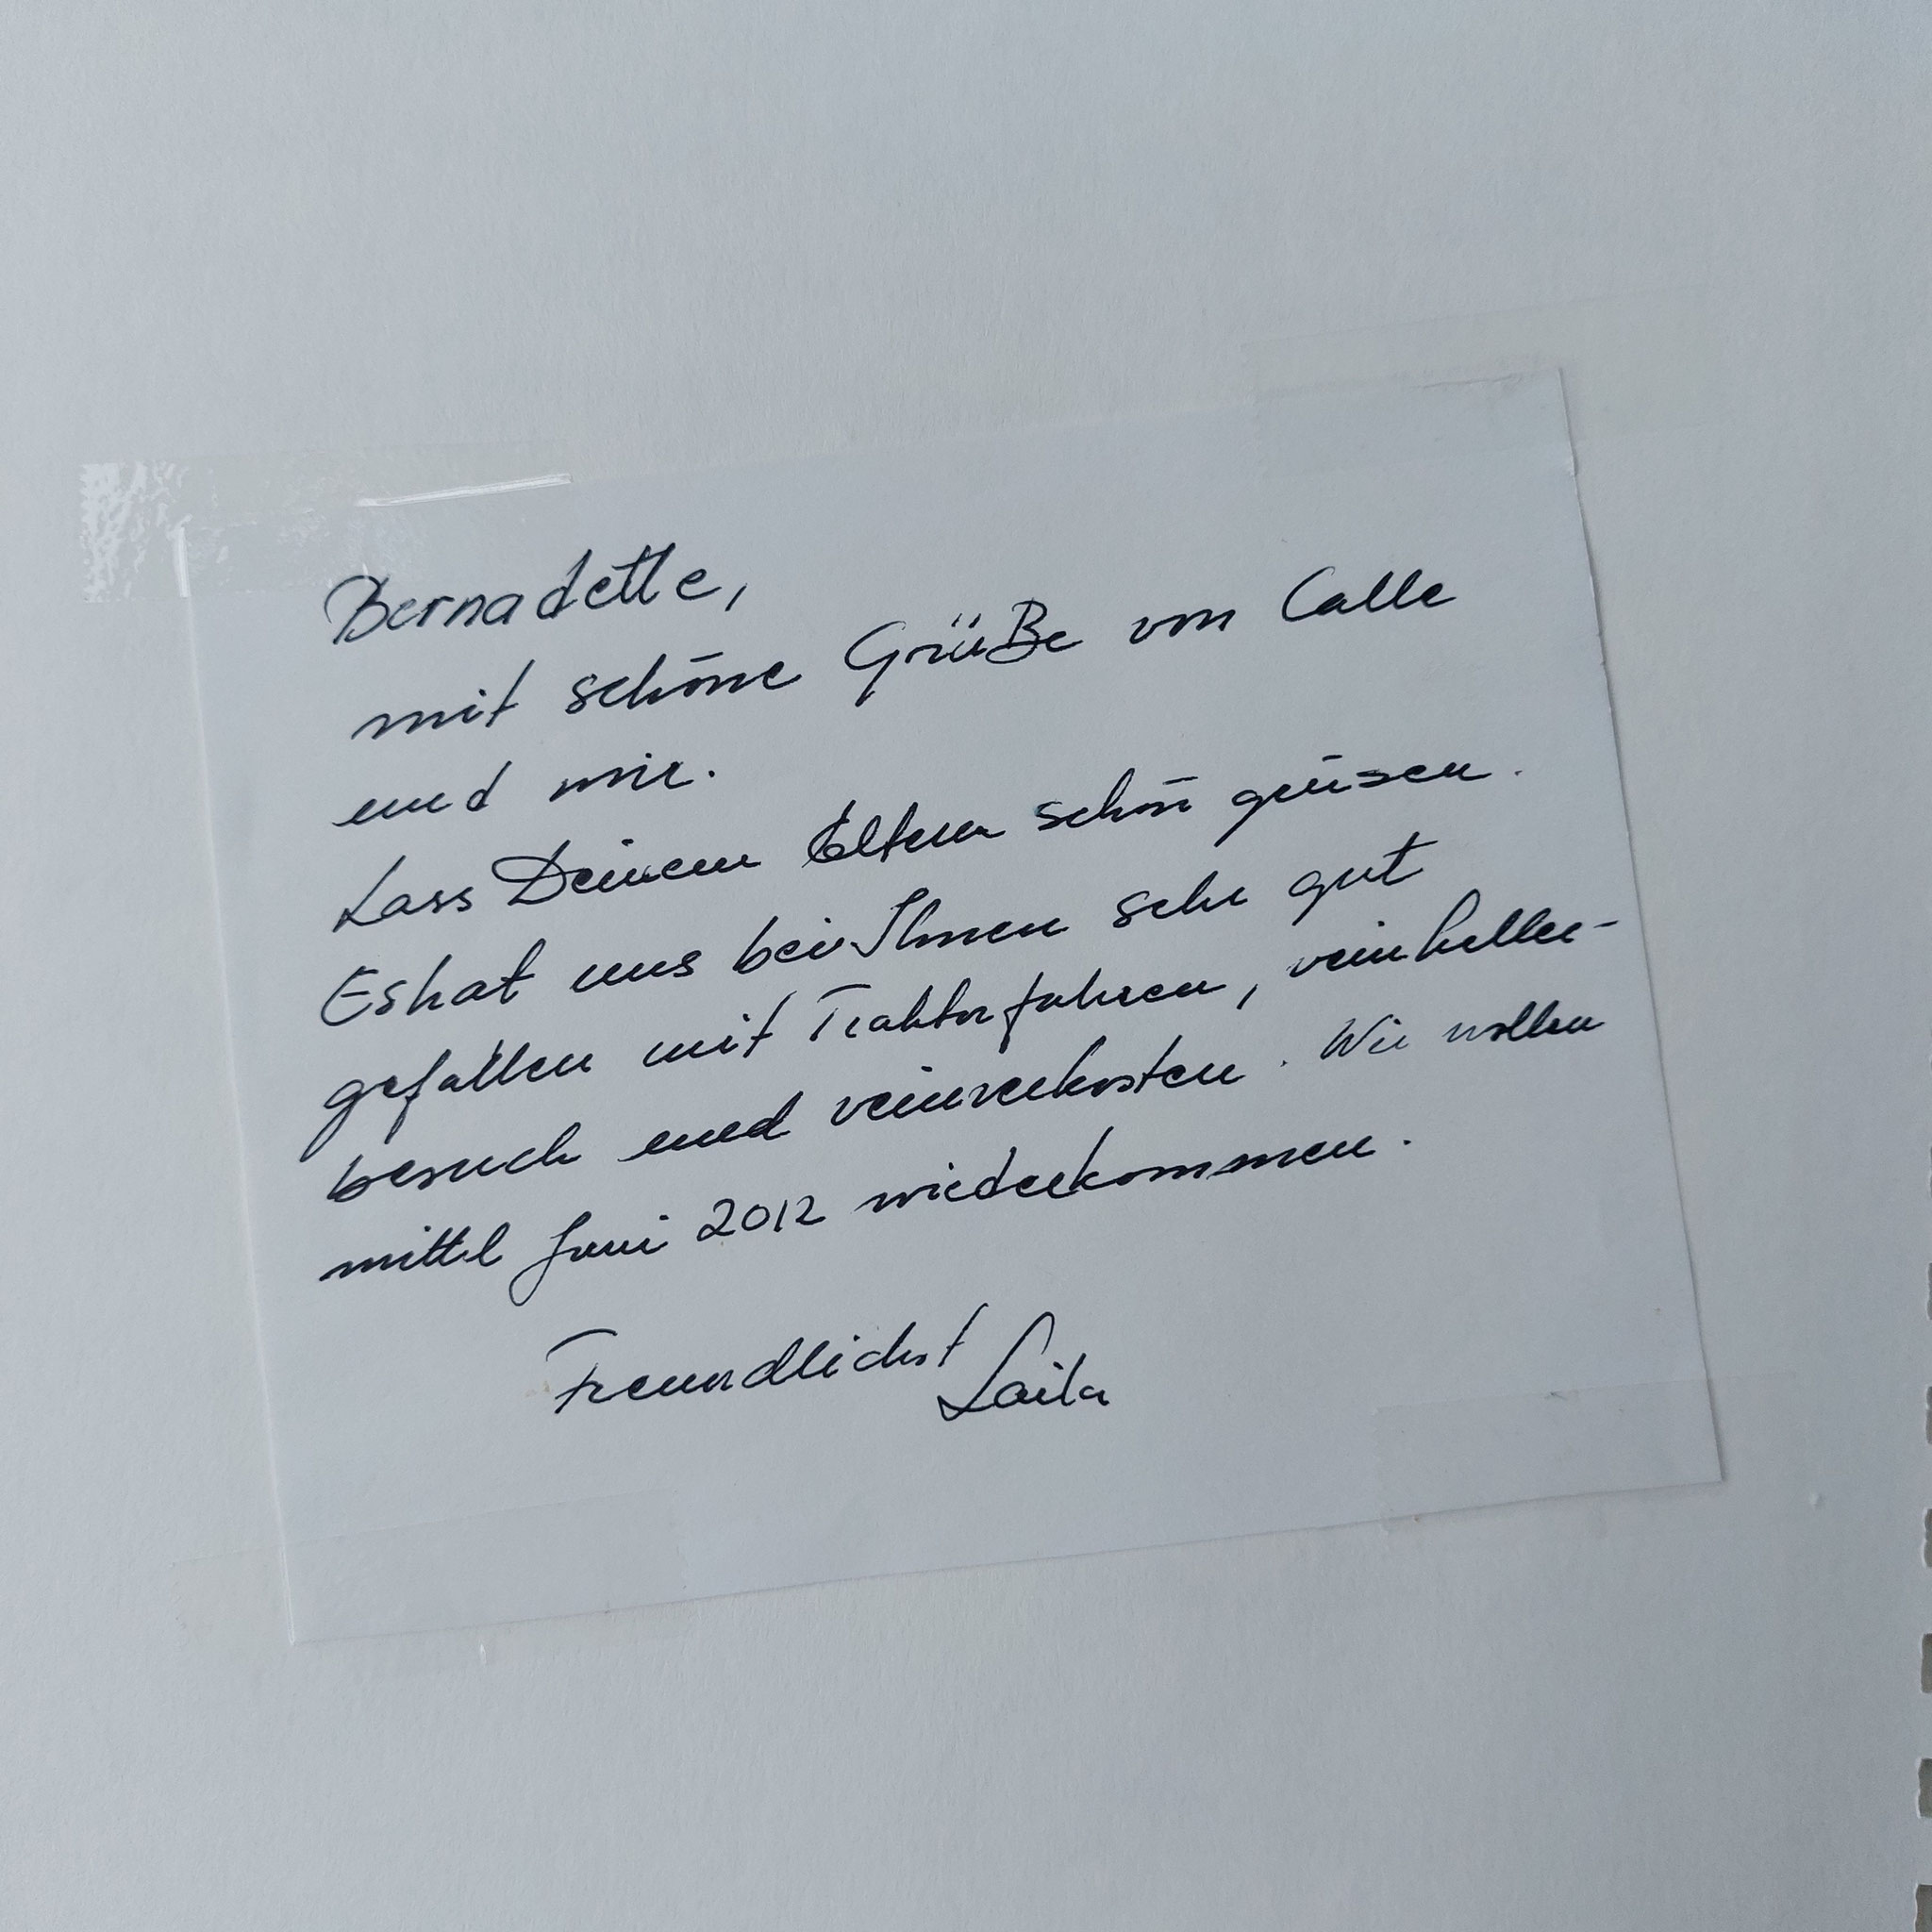 Bernadette,
mit schöne Grüße von Calle
und mir.
Lass Deinem Eltern schön grüsen.
Es hat uns bei Ihnen sehr gut
gefallen mit Traktorfahren, veinkeller-
besuch und veinverkosten. Wir wollen
mittel Juni 2012 wiederkommen.
Freundlichst
Laila